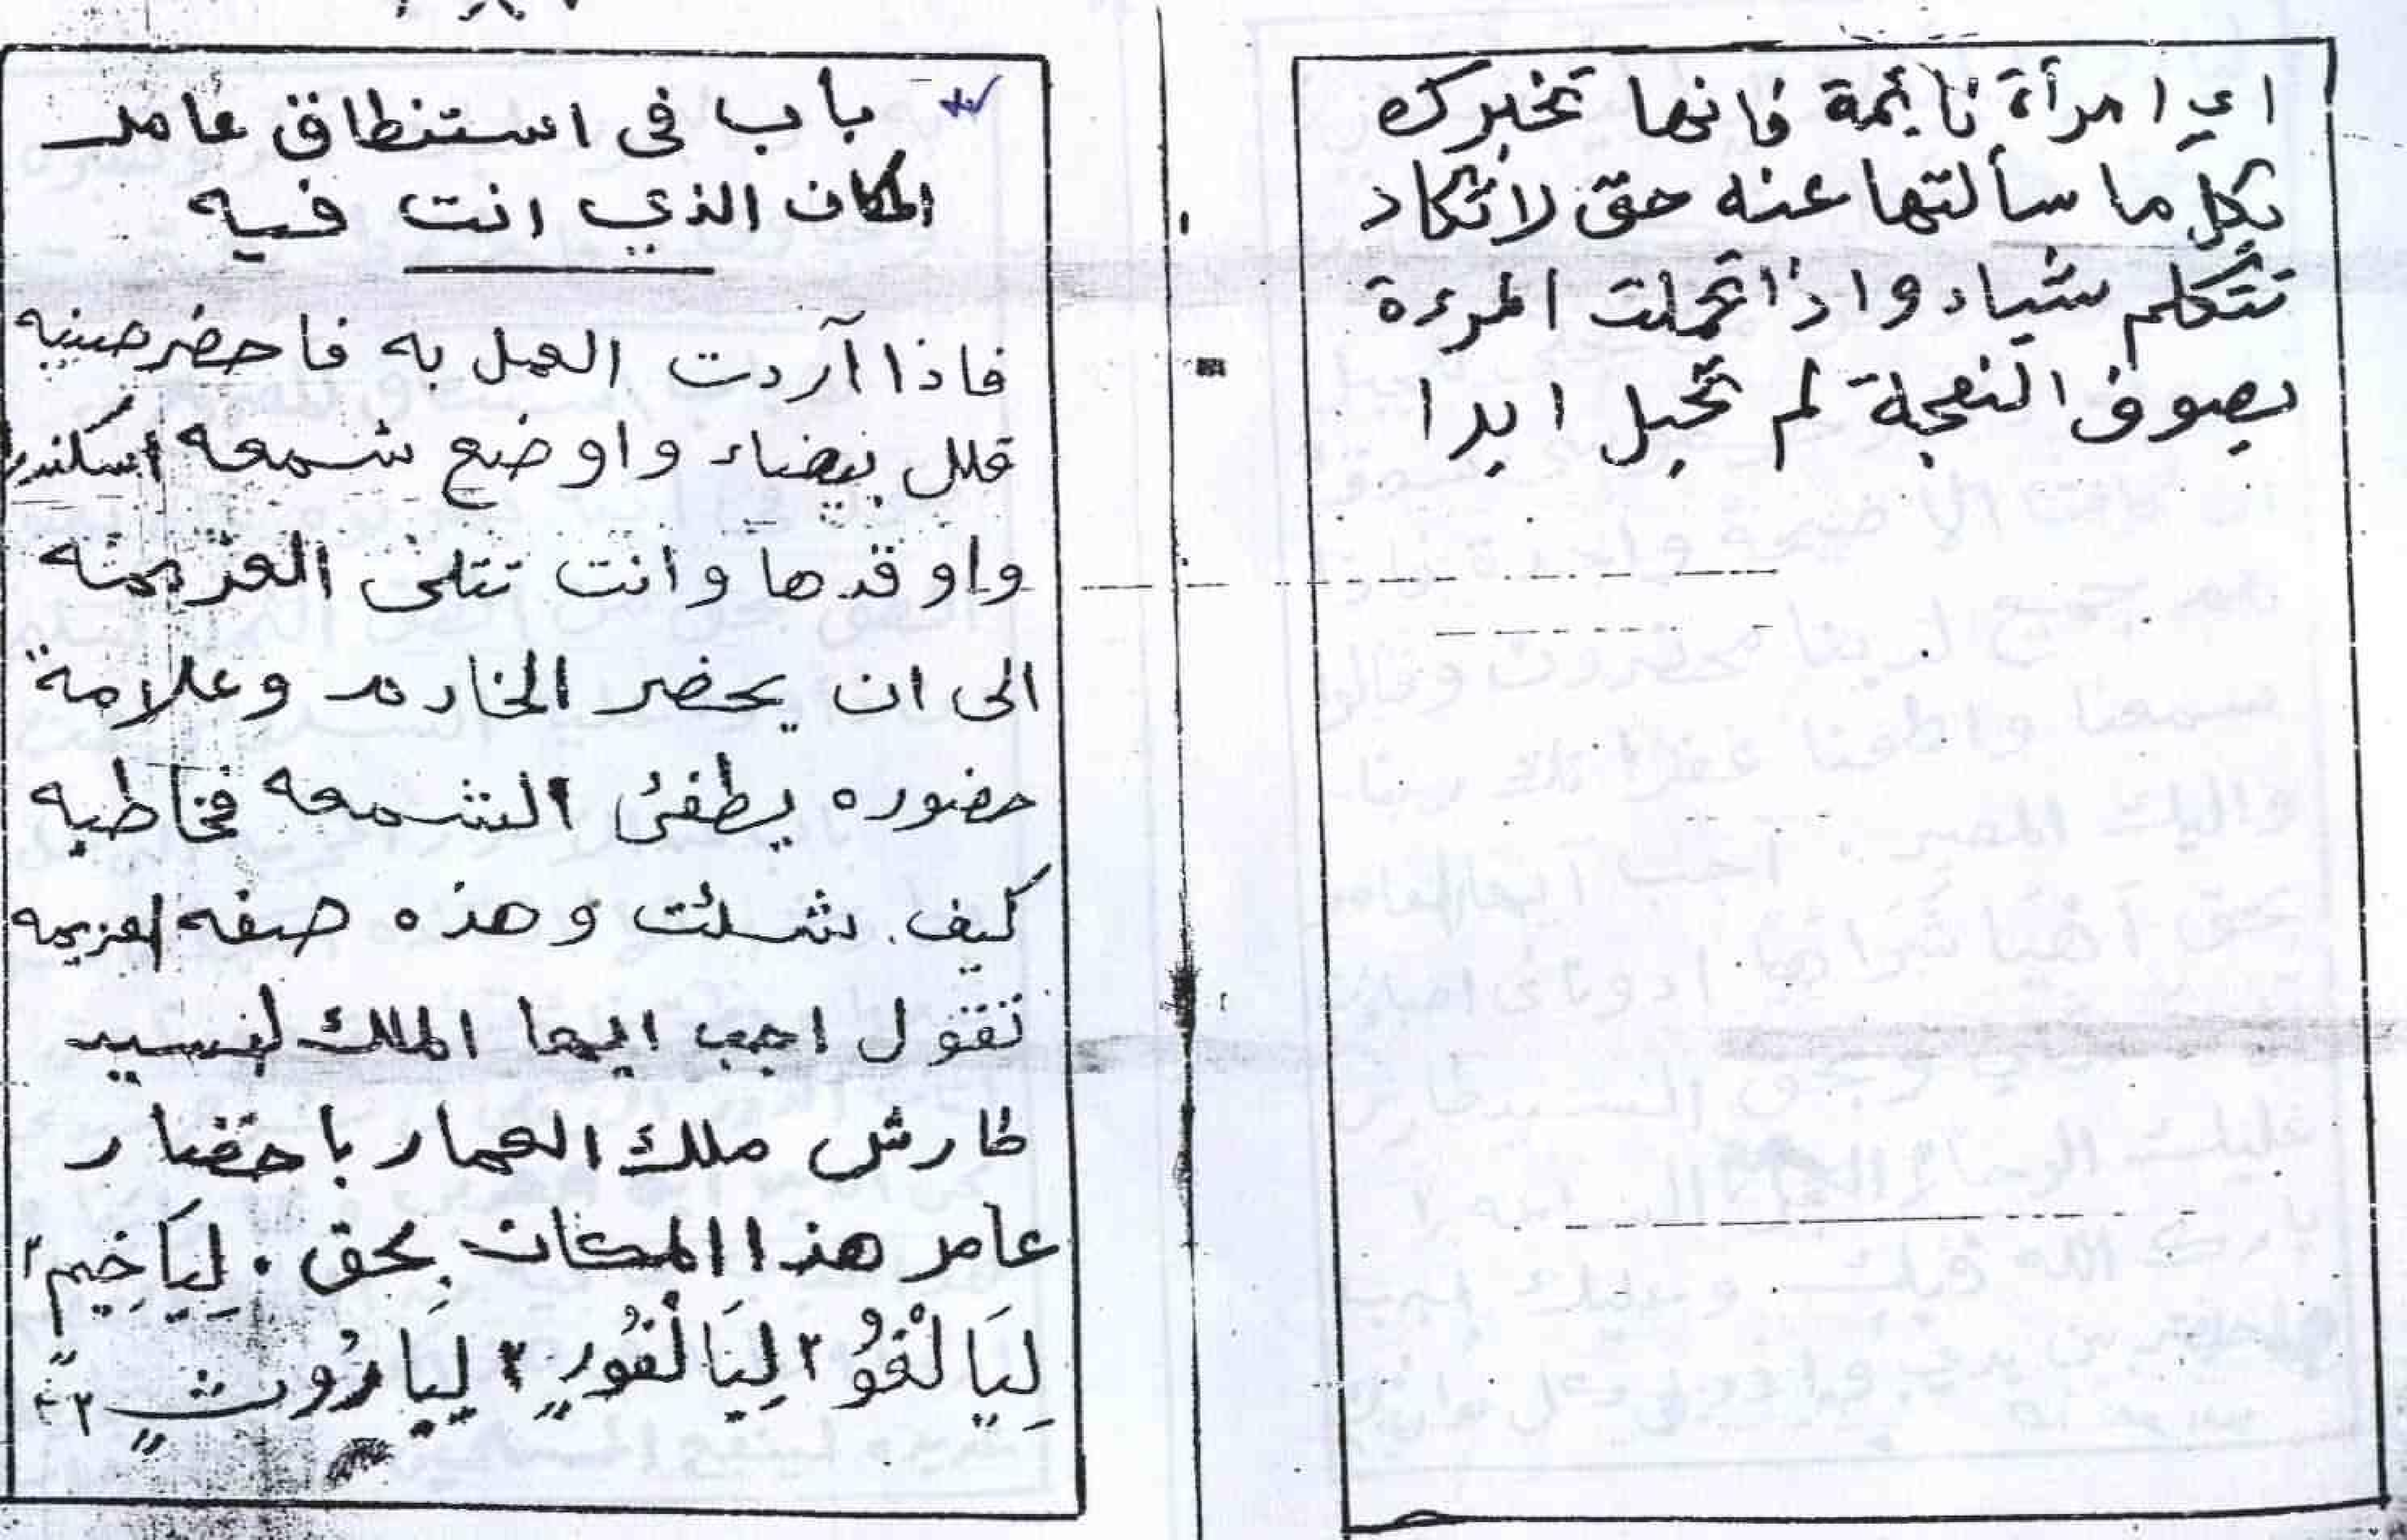 اي امرأة نائمة فانها تخبرك
بكل ما سألتها عنه حتى لا تكاد
تتكلم شياء واذا تحملت المرءة
بصوف النعجة لم تحبل ابدا
باب في استنطاق عامر
المكان الذي انت فيه
فاذا آردت العمل به فاحضر صينيه
قلل بيضاء واوضع شمعه اسكندر
واوقدها وانت تتلى العزيمه
الى ان يحضر الخادم وعلامة
حضوره يطفئ الشمعه فخاطبه
كيف شئت وهذه صفه العزيمه
تقول اجب ايها الملك
طارش ملك العمار باحضار
عامر هذا المكان بحق . لِيَاخِيمٍ ٢
لِيَالْغَوُ ٢ لِيَالْغُورٍ ٢ لِيَارُوثٍ ٢